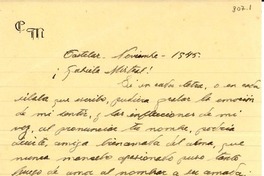 CM
307.1
Castelar - Noviembre - 1945.
¡Gabriela Mistral!
Si en cada letra, o en cada
sílaba que escribo, pudiera grabar la emoción
de mi sentir, y las inflecciones de mi
voz, al pronunciar tu nombre, podría
decirte, amiga del alma, que
nunca mancebo apasionado puso tanto
fuego de amor al nombrar a su amada